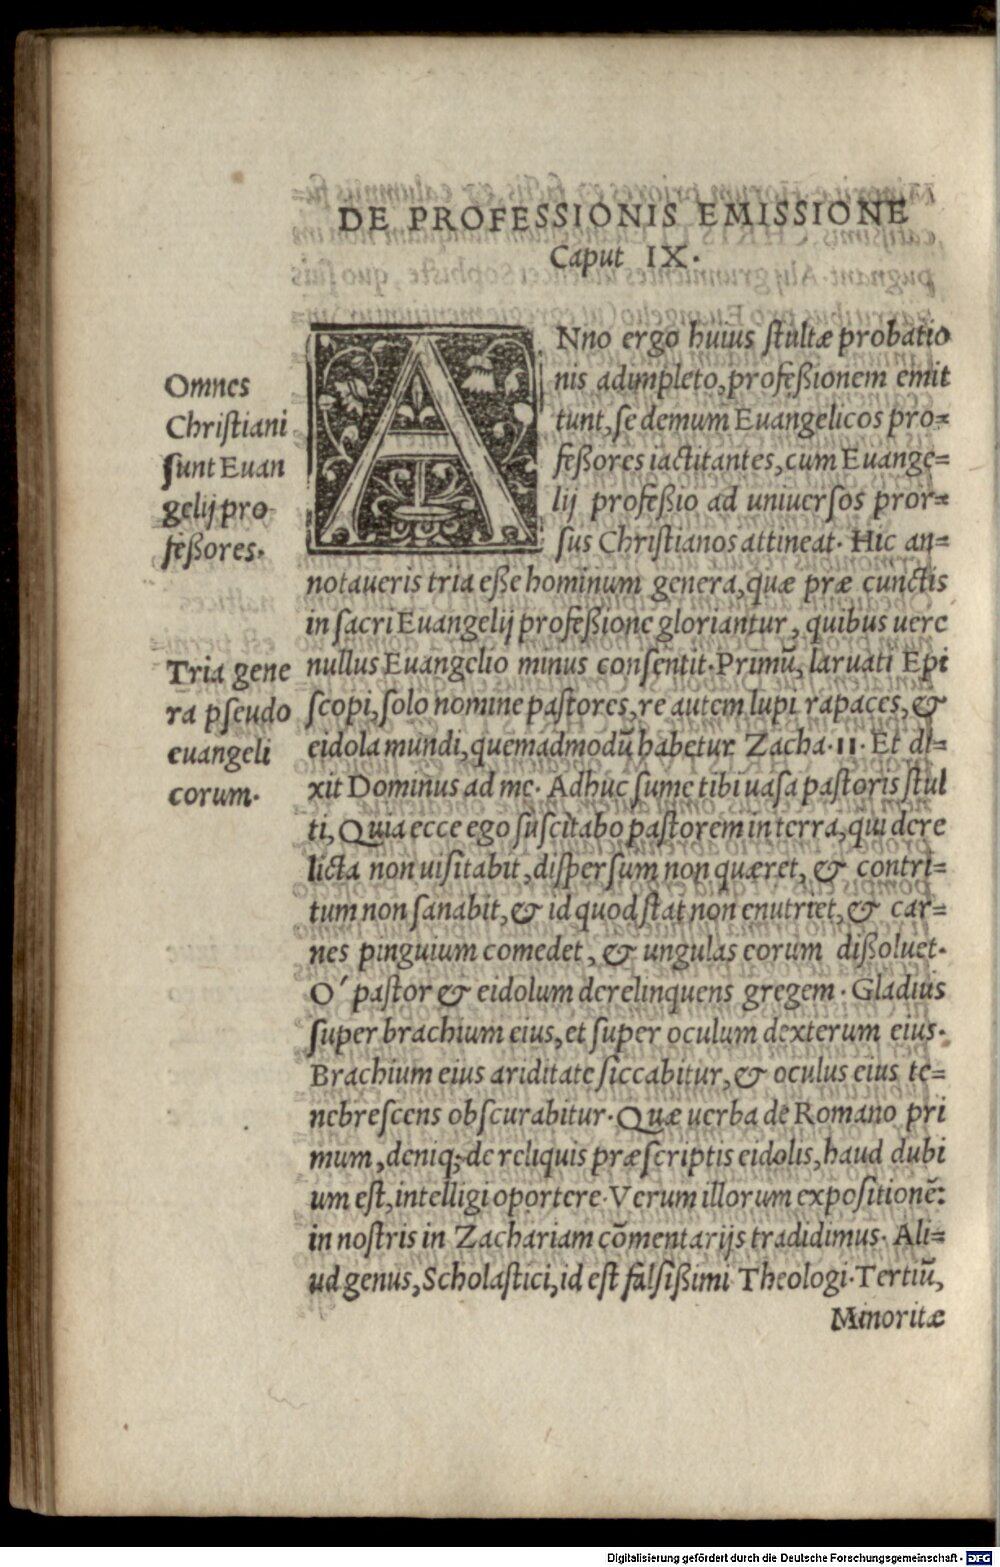 DE PROFESSIONIS EMISSIONE
Caput IX.
Omnes
Chriſtiani
ſunt Euan
gelij pro
feßores.
ANno ergo huius ſtultæ probatio
nis adimpleto, profeßionem emit
tunt, ſe demum Euangelicos pro=
feßores iactitantes, cum Euange=
lij profeßio ad uniuerſos pror=
ſus Chriſtianos attineat. Hic an=
notaueris tria eße hominum genera, quæ præ cunctis
in ſacri Euangelij profeßione gloriantur, quibus uere
nullus Euangelio minus conſentit. Primū, laruati Epi
ſcopi, ſolo nomine paſtores, re autem lupi rapaces, &
eidola mundi, quemadmodū habetur Zacha. 11. Et di=
xit Dominus ad me. Adhuc ſume tibi uaſa paſtoris ſtul
ti, Quia ecce ego ſuſcitabo paſtorem in terra, qui dere
licta non uiſitabit, diſperſum non quæret, & contri=
tum non ſanabit, & id quod ſtat non enutriet, & car=
nes pinguium comedet, & ungulas eorum dißoluet.
O' paſtor & eidolum derelinquens gregem. Gladius
ſuper brachium eius, et ſuper oculum dexterum eius.
Brachium eius ariditate ſiccabitur, & oculus eius te=
nebreſcens obſcurabitur. Quæ uerba de Romano pri
mum, deniq; de reliquis præſcriptis eidolis, haud dubi
um eſt, intelligi oportere. Verum illorum expoſitionē:
in noſtris in Zachariam cōmentarijs tradidimus. Ali=
ud genus, Scholaſtici, id eſt falſißimi Theologi. Tertiū,
Minoritæ
Tria gene
ra pſeudo
euangeli
corum.
Digitalisierung gefördert durch die Deutsche Forschungsgemeinschaft - DFG